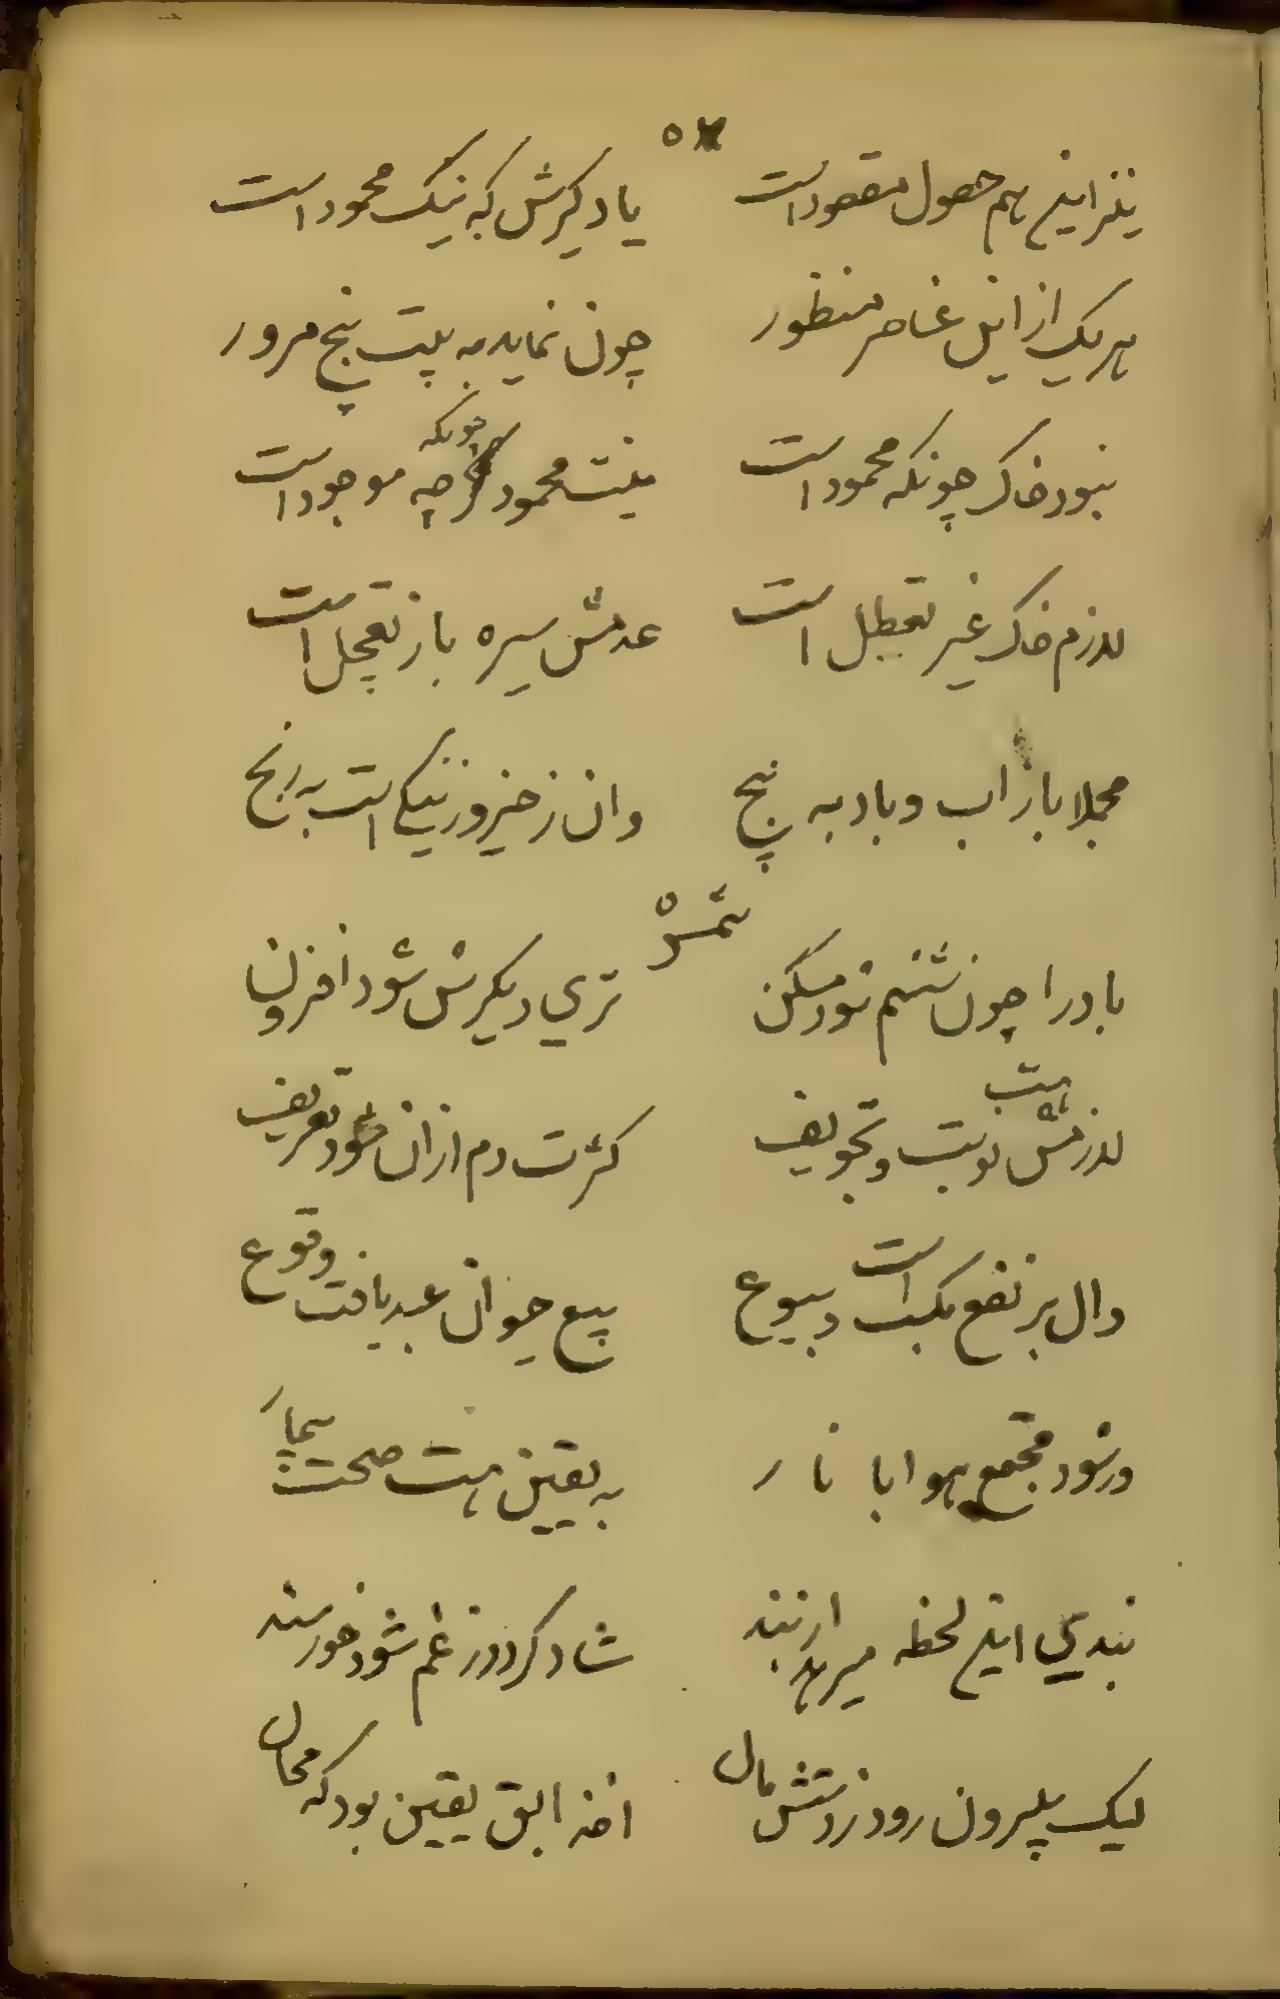 نیز اینهم حصول مقصود است یاد گیرش که نیک محمود است
هر یک از این عناصر منظور چون نماید به بیت پنج مرور
نبود خاک چونکه محمود است نیست محمود گرچه موجود است
چونکه
لازم خاک غیر تعطیل است عدمش سیره باز تعجیل است
مجملا باز اب و باد به پنج وان ز خیر و ز نیکی است به رنج
باد را چون ششم شود مسکن تری دیگرش شود افزون
ششمش
لازمش نوبت و تجویف کثرت دم ازان شود تعریف
هست
دال بر نفع مکسب است و بیوع بیع حیوان عبد یافت وقوع
ور شود مجتمع هوا با نار به یقین هست صحت بیمار
بندی اینلحظه میرهد از بند شاد گردد ز غم شود خورسند
لیک بیرون رود ز دستش مال اخذ ابق یقین بود که محال